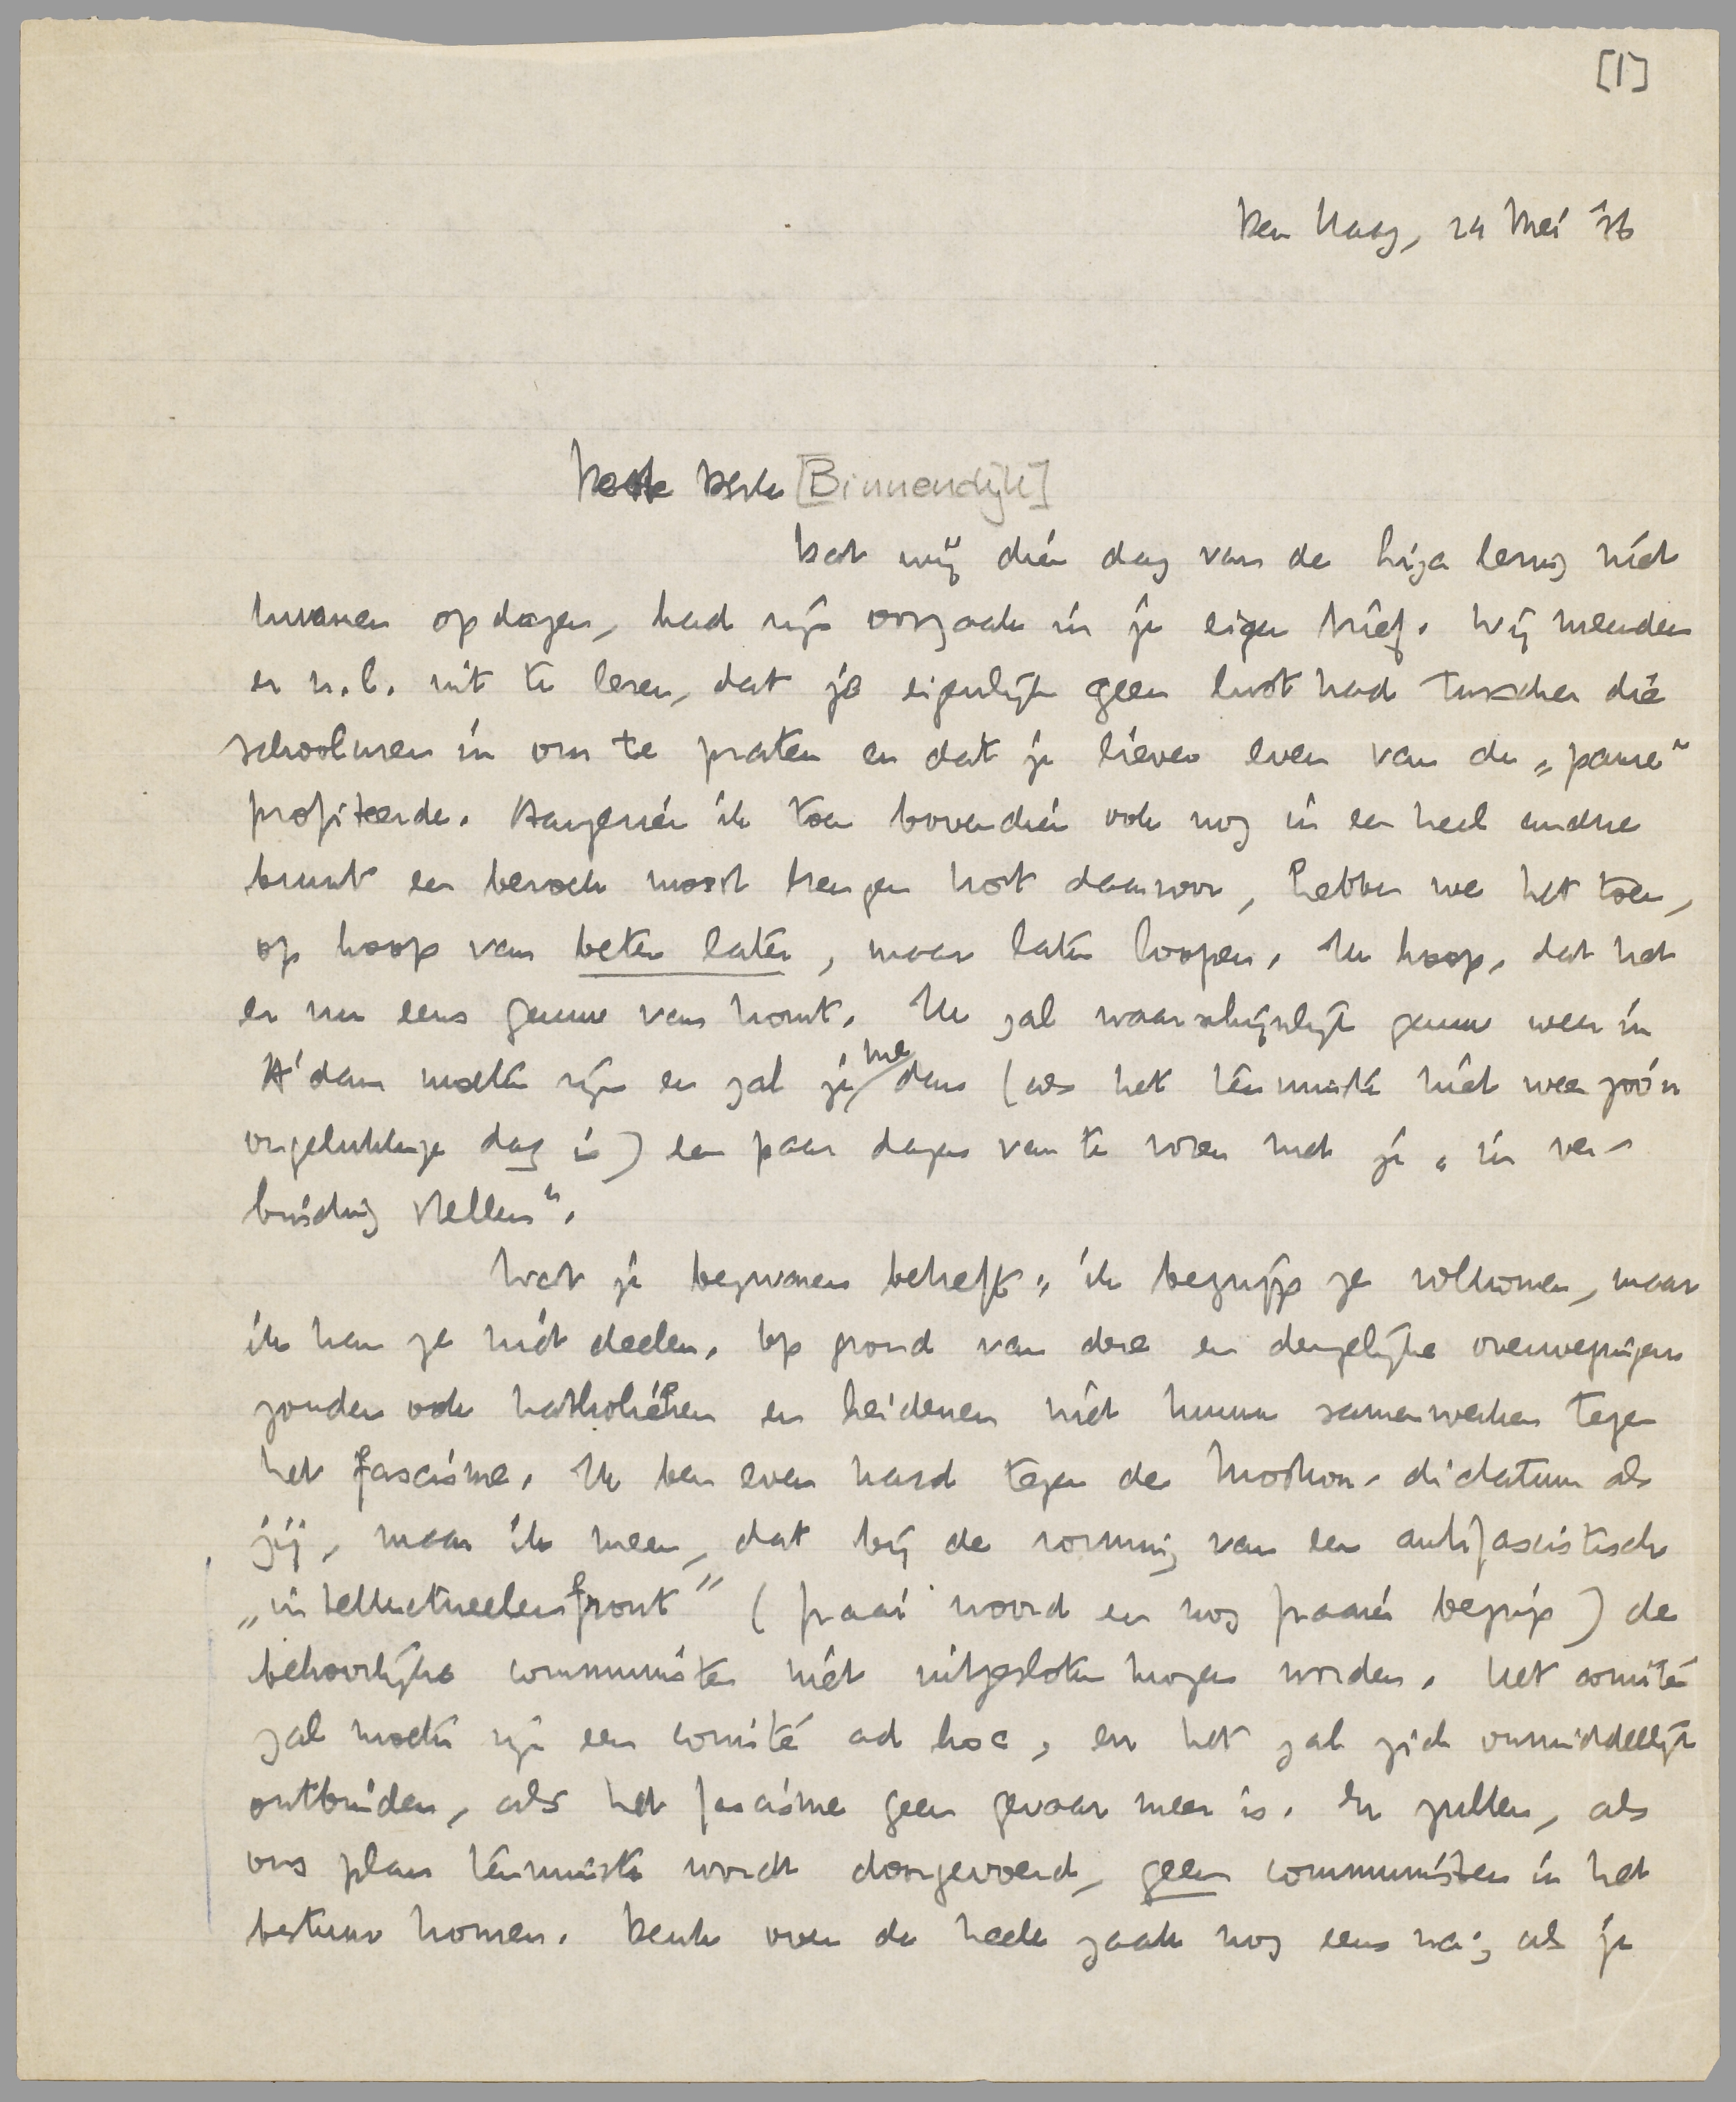 [1]
Den Haag, 24 Mei '36
Beste Dirk [Binnendijk]
Dat wij dien dag van de lezing niet
kwamen opdagen, had zijn oorzaak in je eigen brief. Wij meenden
er n.l. uit te lezen, dat je eigenlijk geen lust had tusschen die
schoolmen in om te praten en dat je liever even van de „pauze"
profiteerde. Aangezien ik toen bovendien ook nog in een heel andre
buurt een bezoek moest brengen kort daarvoor, hebben we het toen,
op hoop van beter later, maar laten loopen. Ik hoop, dat het
er nu eens gauw van komt. Ik zal waarschijnlijk gauw weer in
A'dam moeten zijn en zal je me dan (als het tenminste niet weer zoo'n
ongelukkige dag is) een paar dagen van te voren met je „in ver-
binding stellen".
Wat je bezwaren betreft: ik begrijp ze volkomen, maar
ik kan ze niet deelen. Op grond van deze en dergelijke overwegingen
zouden ook katholieken en heidenen niet kunnen samenwerken tegen
het fascisme. Ik ben even hard tegen de Moskou-dictatuur als
jij, maar ik meen, dat bij de vorming van een antifascistisch
„intellectueelenfront" (fraai woord en nog fraaier begrip) de
behoorlijke communisten niet uitgesloten mogen worden. Het comité
zal moeten zijn een comité ad hoc, en het zal zich onmiddellijk
ontbinden, als het fascisme geen gevaar meer is. Er zullen, als
ons plan tenminste wordt doorgevoerd, geen communisten in het
bestuur komen. Denk over de heele zaak nog eens na; als je